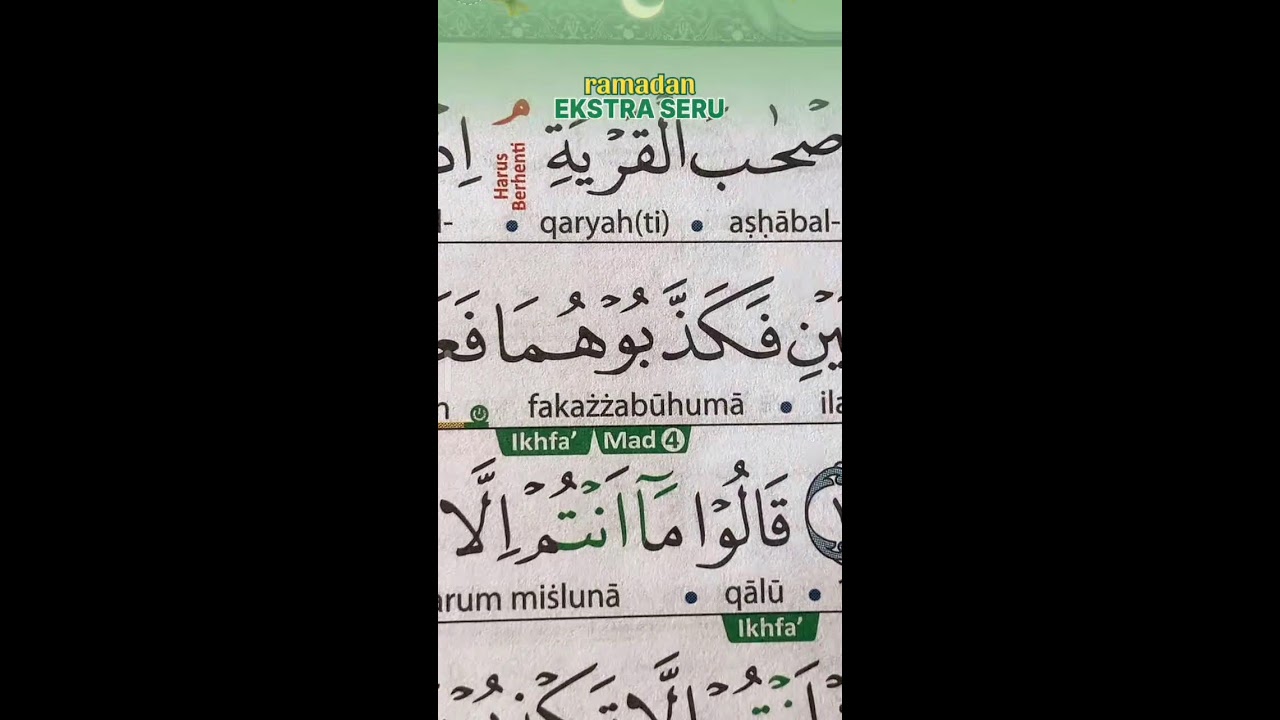 ramadan
EKSTRA SERU
صْحٰبَ الْقَرْيَةِ ۘ
Harus Berhenti
qaryah(ti) • aṣḥābal-
فَكَذَّبُوْهُمَا
fakażżabūhumā •
Ikhfa’ Mad 4
قَالُوْا مَآ اَنْتُمْ اِلَّا
arum miṡlunā • qālū •
Ikhfa’